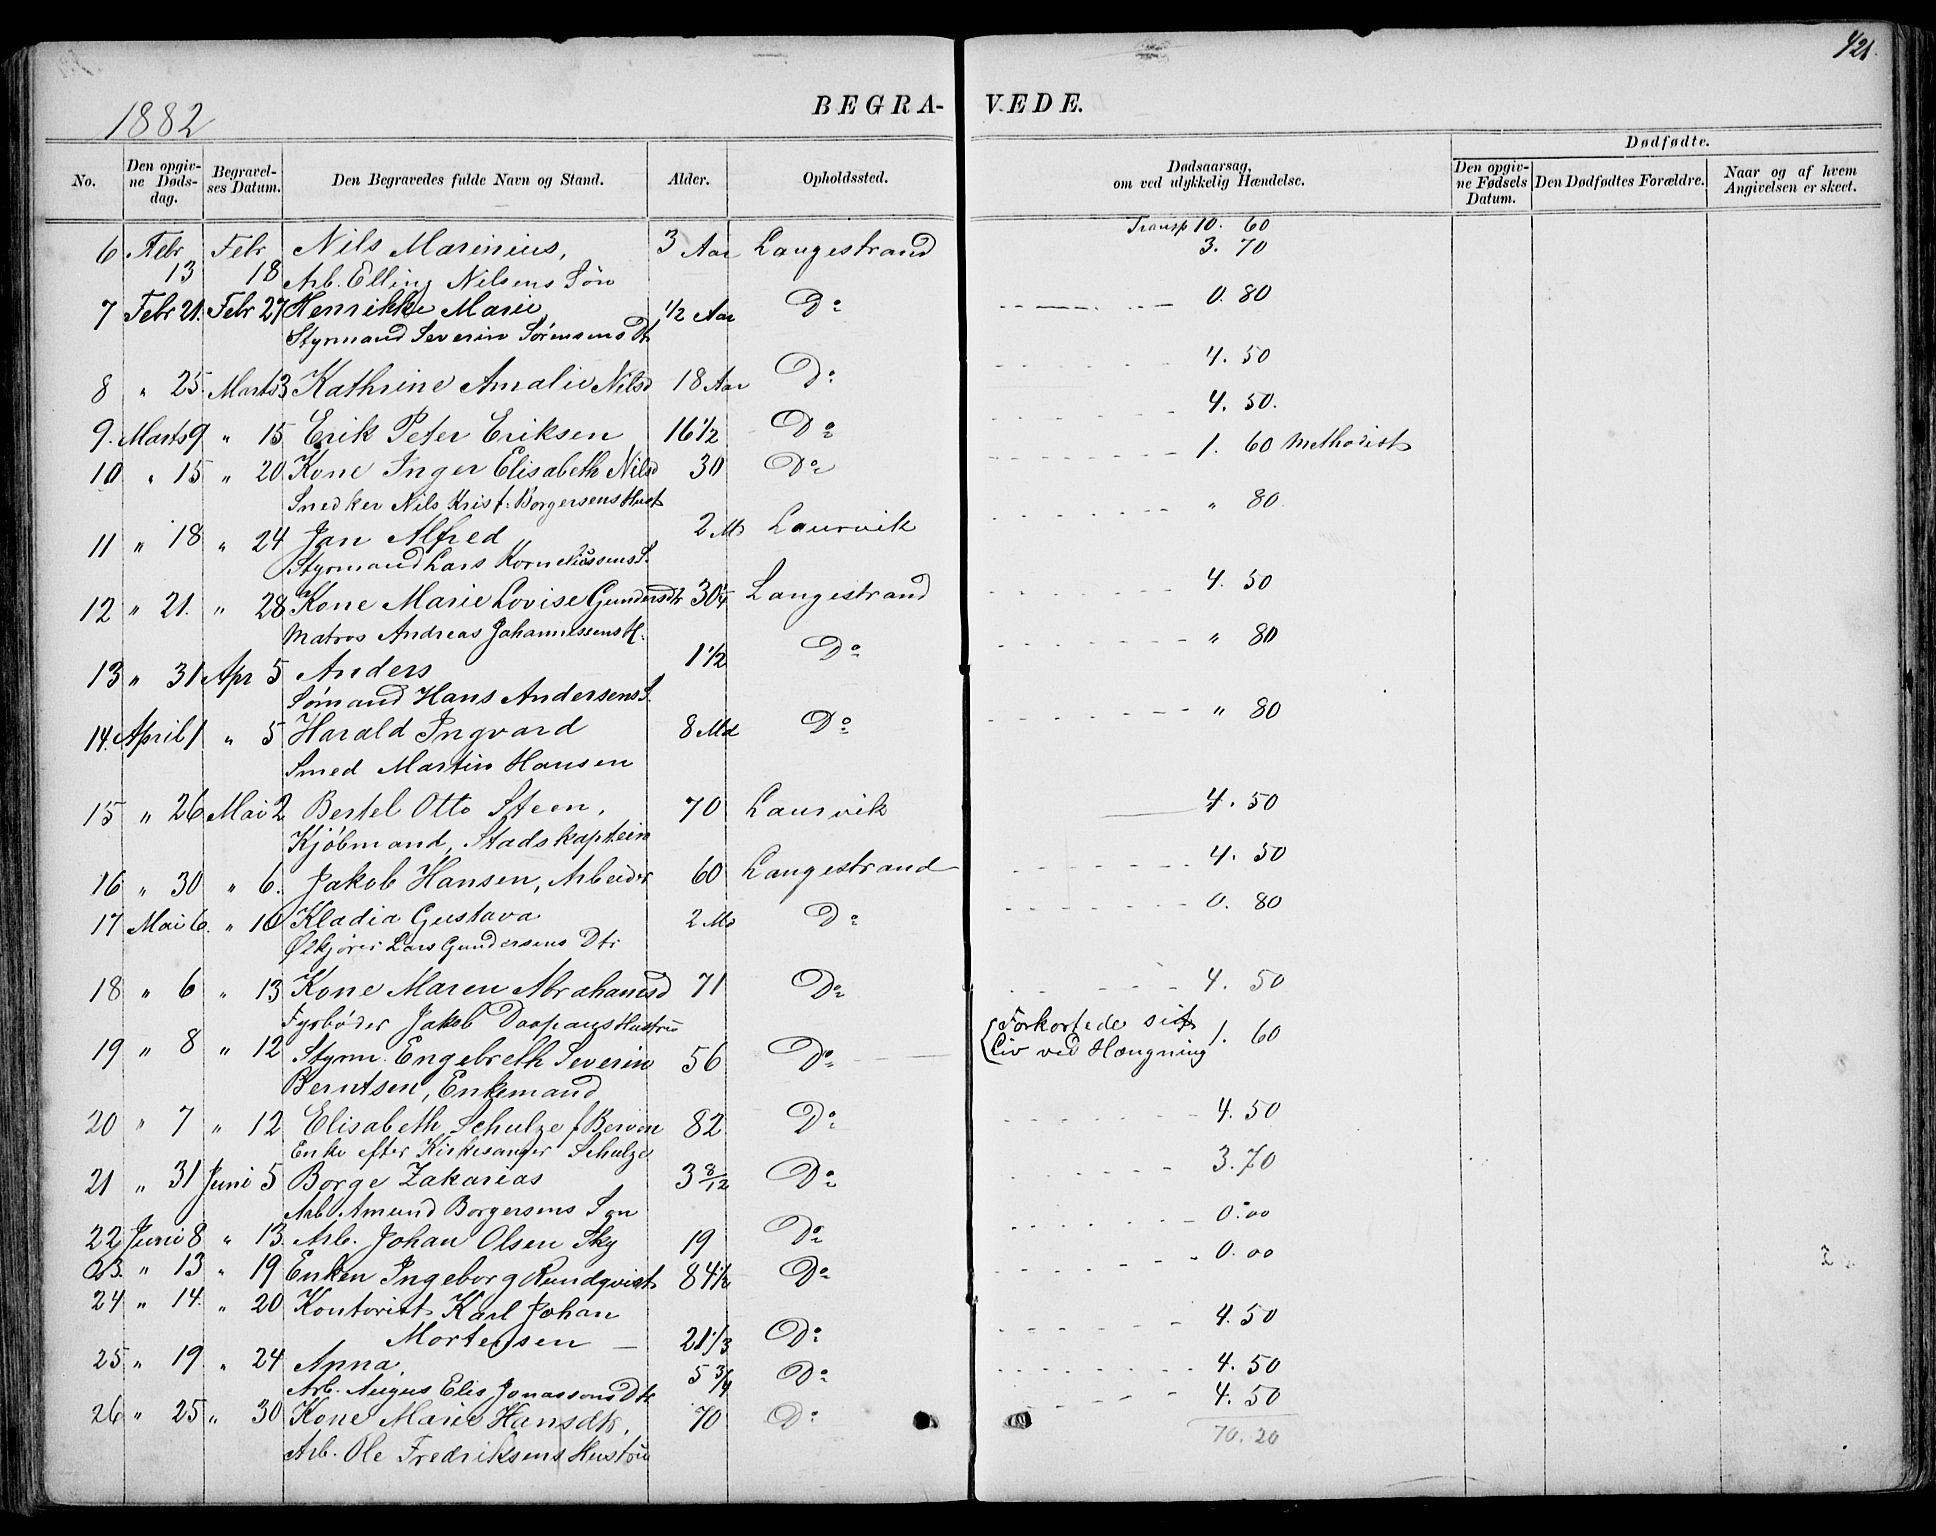 421.
1882
BEGRA- VEDE.
No. Den opgiv-ne Døds-dag. Begravel-ses Datum. Den Begravedes fulde Navn og Stand. Alder. Opholdssted. Dødsaarsag, om ved ulykkelig Hændelse. Dødfødte. Den opgiv-ne Fødsels Datum. Den Dødfødtes Forældre. Naar og af hvem Angivelsen er skeet.
Transp 10. 60
6 Febr 13 Febr 18 Nils Marinius, 3 Aar Langestrand 3. 70
Arb. Elling Nilsens Søn
7 Febr 21. Febr 27 Henrikke Marie 1/2 Aar Do 0. 80
Styrmand Severin Sørensens Dtr
8 " 25. Marts 3 Kathrine Amalie Nilsd 18 Aar Do 4. 50
9. Marts 9 " 15 Erik Peter Eriksen 16 1/2 Do 4. 50.
10 " 15 " 20 Kone Inger Elisabeth Nilsd 30 Do 1. 60 Methodist
Snedker Nils Krist. Borgersens Hust
11 " 18 " 24 Jan Alfred 2 Md Laurvik " 80
Styrmand Lars Korneliussens S.
12 " 21. " 28 Kone Marie Lovise Gundersdtr 30 1/4 Langestrand 4. 50
Matros Andreas Johannessens H.
13 " 31 Apr 5 Anders 1 1/2 Do " 80
Sømand Hans Andersens S.
14. April 1 " 5 Harald Ingvard 8 Md Do " 80
Smed Martin Hansen
15 " 26 Mai 2 Bertel Otto Steen, 70 Laurvik 4. 50
Kjøbmand, Stadskaptein
16 " 30 " 6. Jakob Hansen, Arbeider 60 Langestrand 4. 50
17 Mai 6. " 10 Kladia Gustava 2 Md Do 0. 80
Ølkjører Lars Gundersens Dtr
18 " 6 " 13 Kone Maren Abrahamsd 71 Do 4. 50
Fyrbøder Jakob Daapans Hustru
19 " 8 " 12 Styrm. Engebreth Severin 56 Do Forkortede sit 1. 60
Berntsen, Enkemand Liv ved Hængning
20 " 7 " 12 Elisabeth Schulze f. Berven 82 Do 4. 50
Enke efter Kirkesanger Schulze
21 " 31 Juni 5 Borge Zakarias 3 8/12 Do 3. 70
Arb. Amund Borgersens Søn
22 Juni 8 " 13. Arb. Johan Olsen Sky 19 Do 0. 00
23. " 13 " 19 Enken Ingeborg Rundqvist 84 1/2 Do 0. 00
24 " 14. " 20 Kontorist Karl Johan
Mortensen 21 1/3 Do 4. 50
25 " 19 " 24 Anna, 5 3/4 Do 4. 50
Arb. Augus Elis Jonassons Dtr
26 " 25 " 30 Kone Marie Hansdtr, 70 Do 4. 50
Arb. Ole Fredriksens Hustru
70. 20